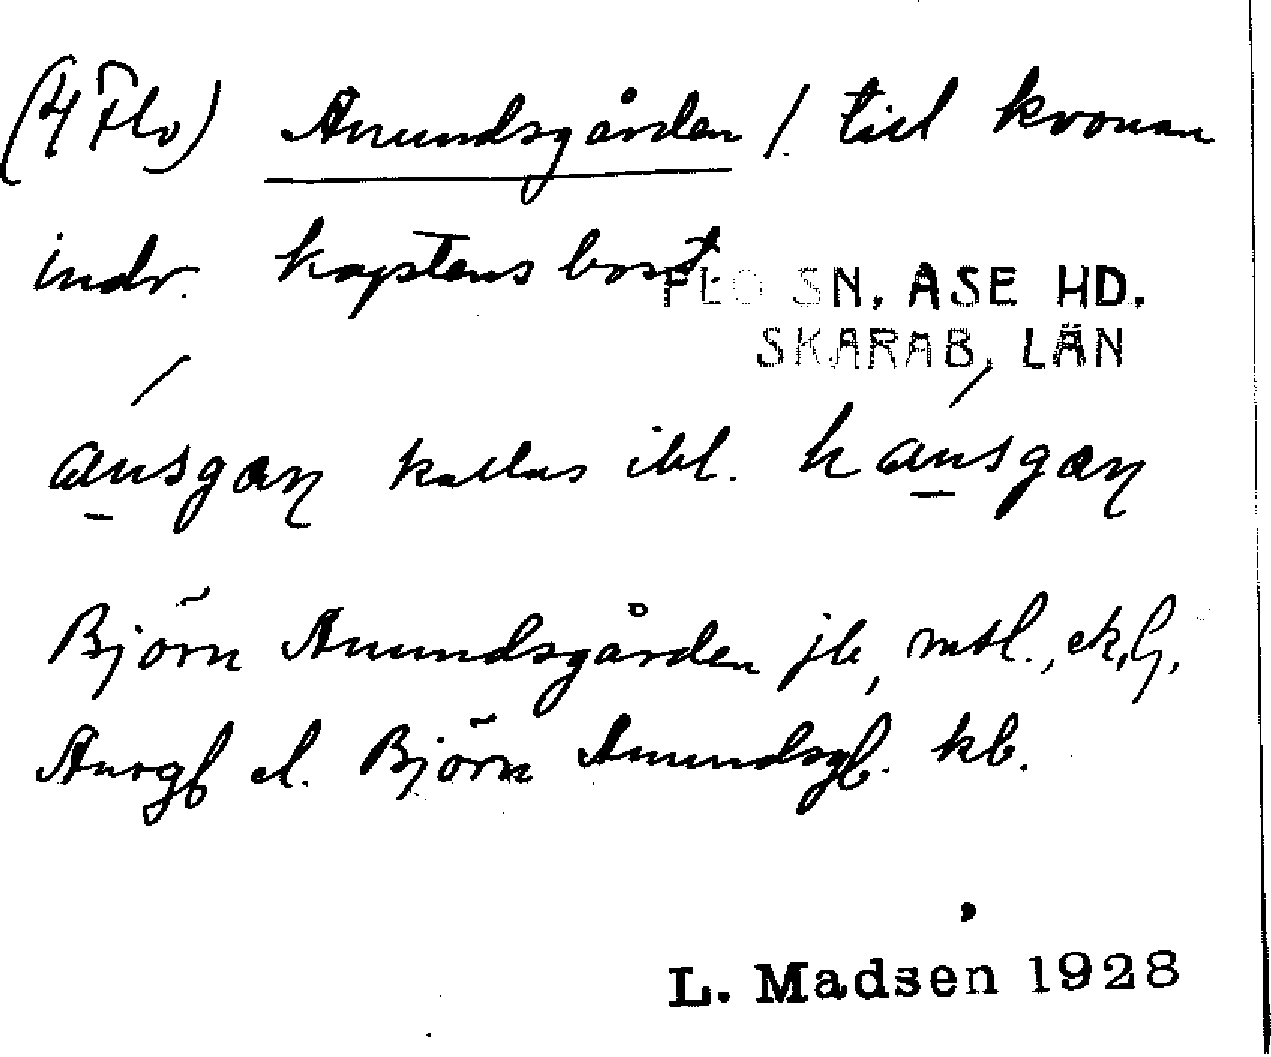 (4 Flo) Anundsgården /. till kronan
indr. kaptensbost
FLO SN. ASE HD.
SKARAB. LÄN
ansgaɳ kallas ibl. hansgaɳ
Björn Anundsgården jb, mtl.,
Ansgb el. Björn Anundsgb. kb.
L. Madsen 1928